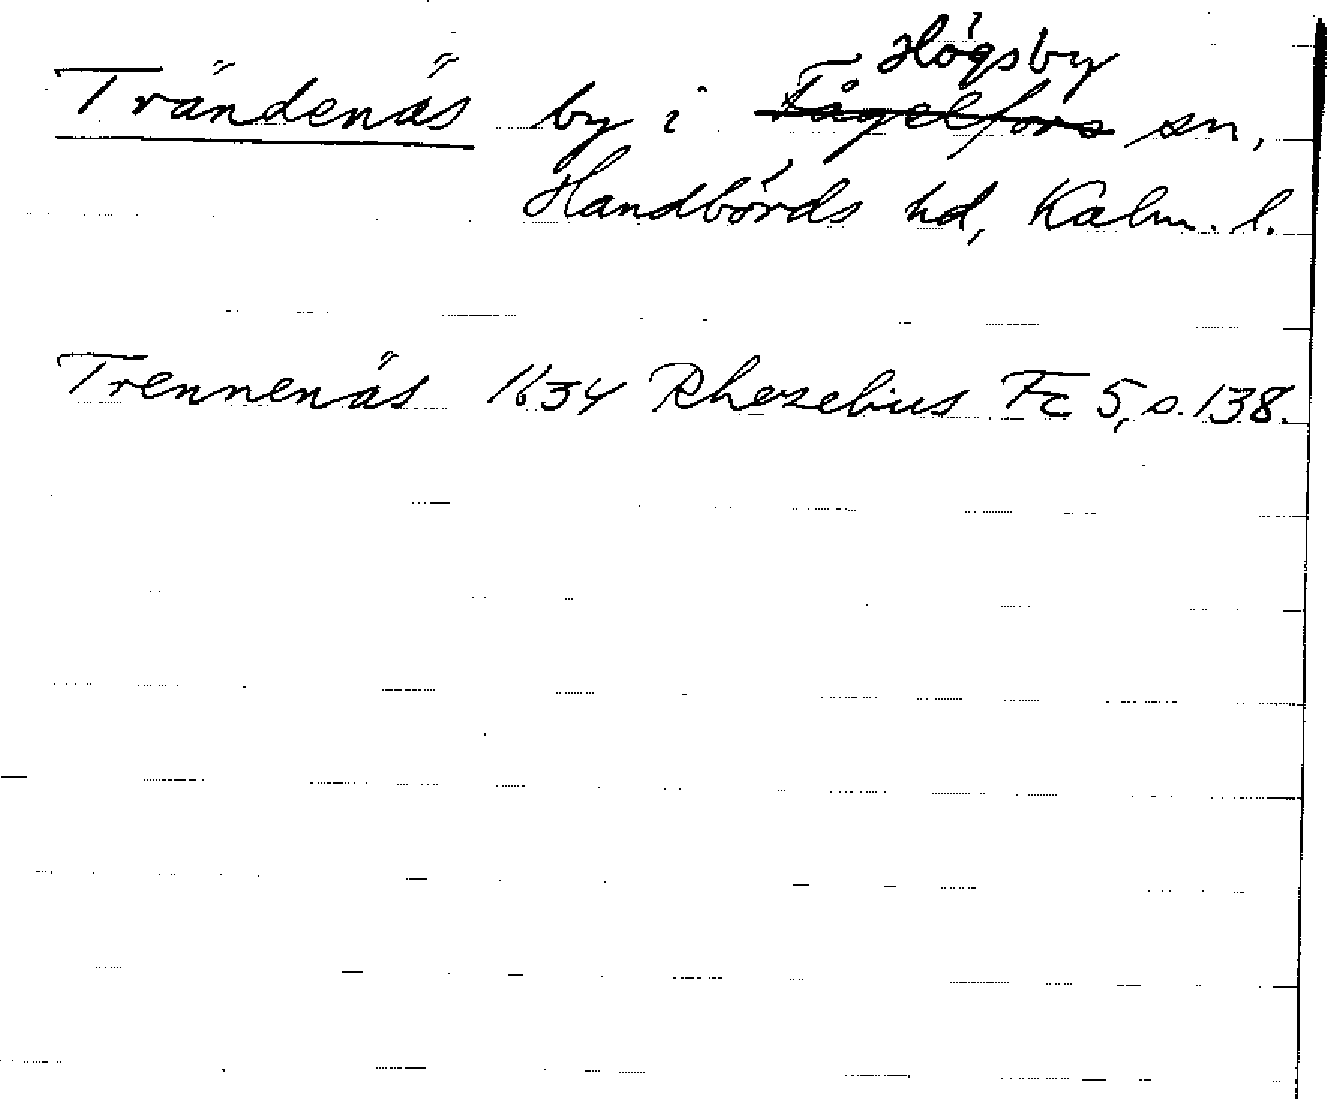 Högsby
Trändenäs by i Fågelfors sn,
Handbörds hd, Kalm. l.
Trennenäs 1634 Rhezelius Fc 5, s. 138.